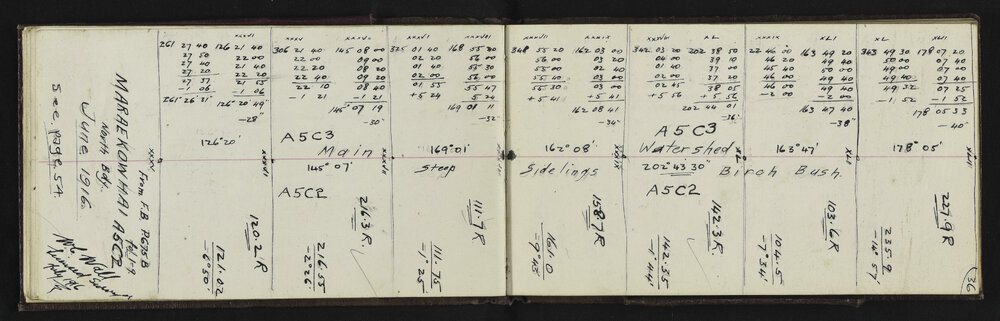 MARAEKOWHAI A5C2
North Bdy.
June 1916
See page 54
XXXV From F.B. P675B
fol 1-9
XXXVI
261 27 40 126 21 40
27 50 22 00
27 40 21 40
27 20 22 20
27 37 21 55
-1 06 -1 06
261 26 31 126 20 49
-28"
126°20'
XXXVI
120.2 R
121.02
-6°50'
XXXV
306 21 40 145 08 00
22 00 09 00
22 20 08 20
22 40 09 20
22 10 08 40
-1 21 -1 21
145 07 19
-30"
A5C3
Main
145°07'
A5C2
XXXVII
216.3 R.
216.55
-2°26'
325 01 40 168 55 30
02 20 56 00
01 40 55 30
02 00 56 00
01 55 55 47
+5 24 5 24
169 01 11
-32"
169°01'
Steep
111.7 R
111.75
-1°25'
348 55 20 162 03 00
55 00 03 20
55 20 02 40
55 40 03 20
55 30 03 00
+5 41 + 5 41
162 08 41
-34"
162°08'
Sidelings
XXXIX
158.7 R
161.0
-9°43'
XXXVIII XL
342 03 20 202 38 50
04 00 39 10
01 40 37 00
03 00 39 20
02 45 38 05
+5 56 + 5 56
202 44 01
-36"
A5C3
Watershed
202°43'30"
XL
A5C2
142.3 R.
142.35
-1°44'
XXXIX XLI
22 46 00 163 49 20
46 20 49 40
45 40 50 00
46 00 49 40
46 00 49 40
-2 00 -2 00
163 47 40
-38"
163°47'
XLI
Birch Bush.
103.6 R
104.5
-7°34'
XL
343 49 30 178 07 20
50 00 07 40
49 00 07 00
49 40 07 40
49 32 07 25
-1 52 -1 52
178 05 33
-40"
178°05'
227.9 R.
235.9
-14°57'
36